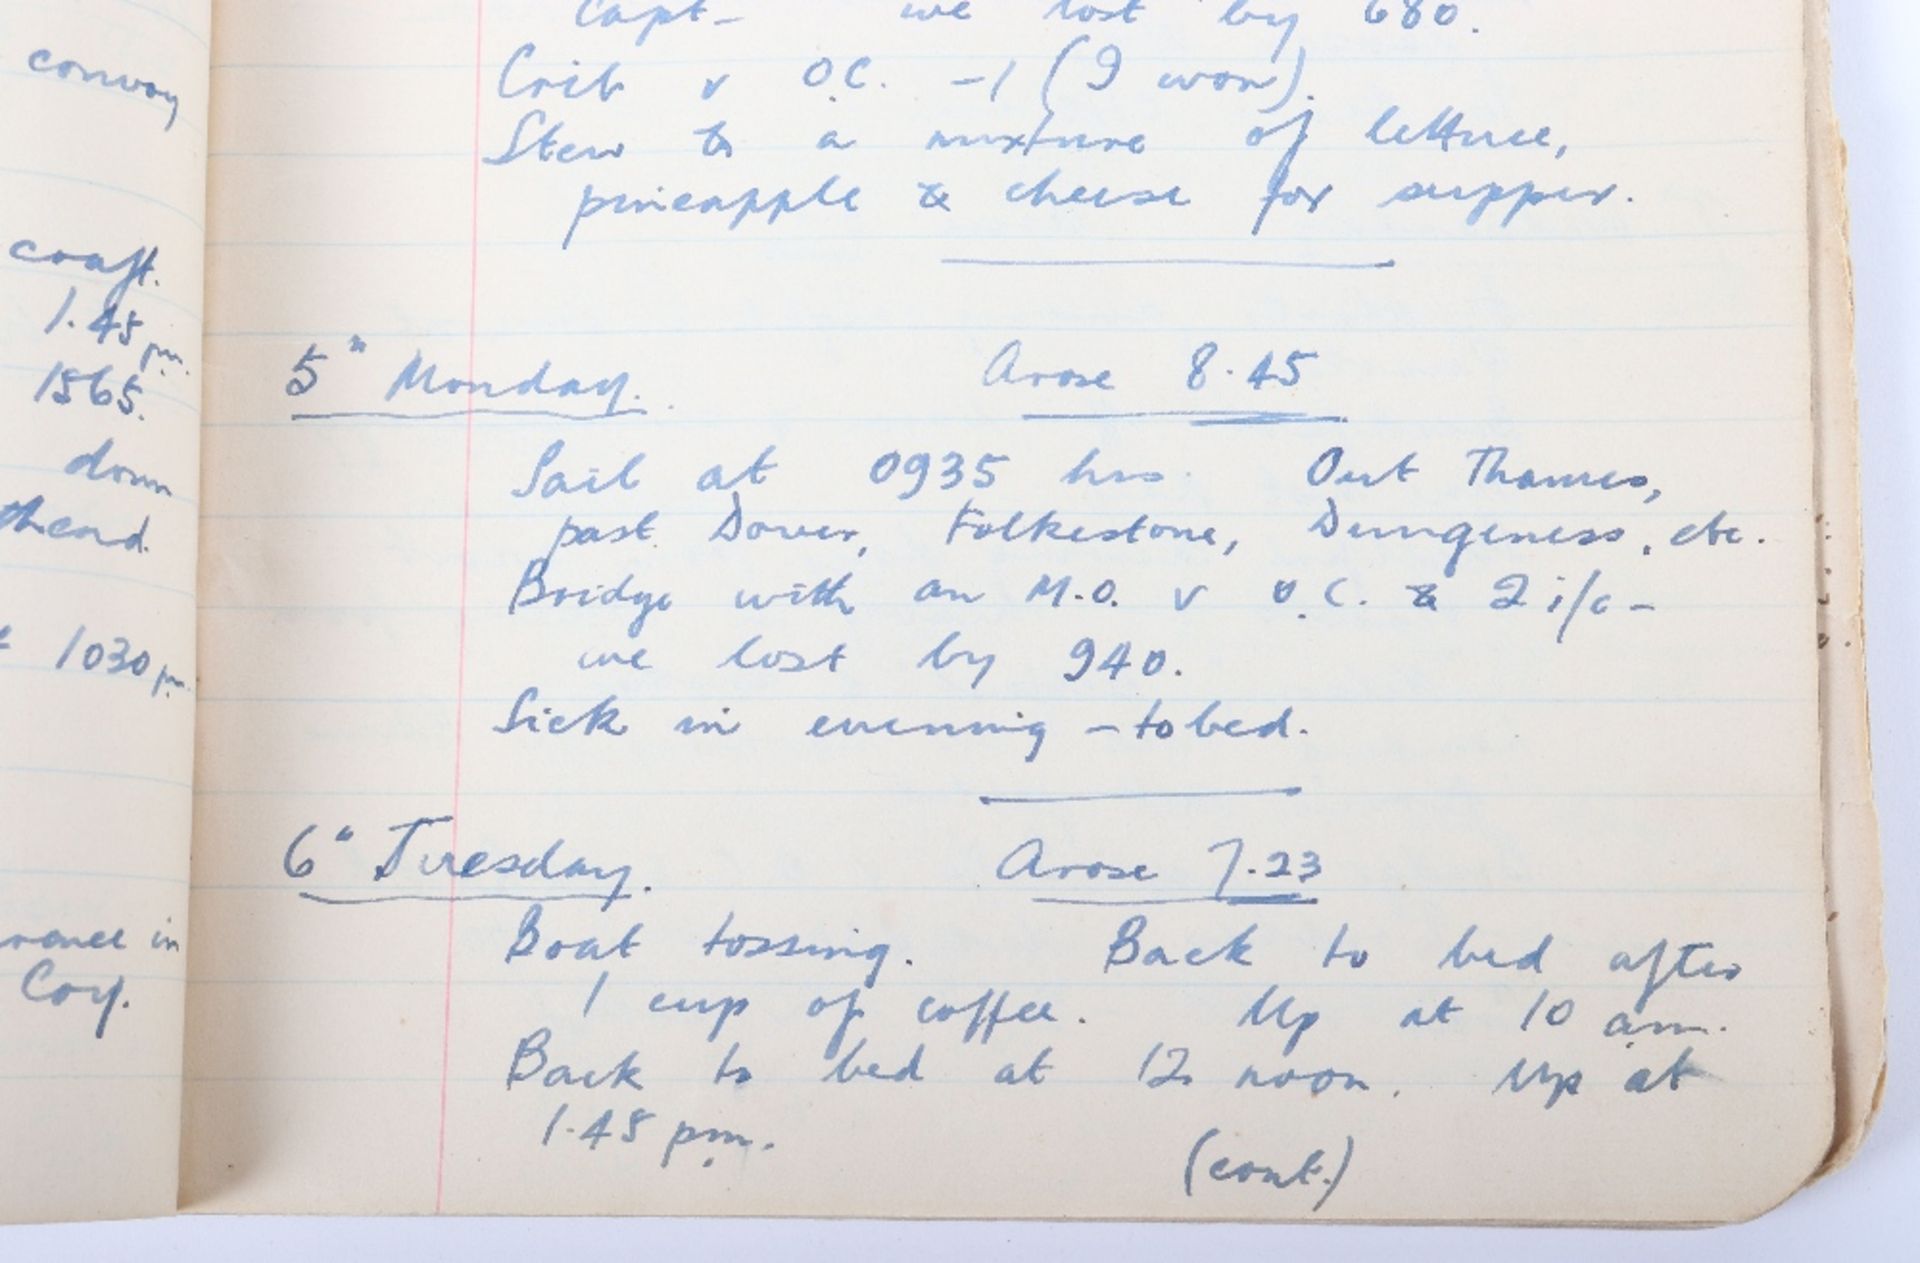 convoy
craft.
1.45 pm.
1565.
down
thend.
1030 pm.
in
Coy.
Capt - we lost by 680.
Crib v O.C. -1 (9 won).
Stew & a mixture of lettuce,
pineapple & cheese for supper.
5" Monday. Arose 8.45
Sail at 0935 hrs. Out Thames,
past Dover, Folkestone, Dungeness, etc.
Bridge with an M.O. v O.C. & 2 i/c -
we lost by 940.
Sick in evening - to bed.
6" Tuesday. Arose 7.23
Boat tossing. Back to bed after
1 cup of coffee. Up at 10 am.
Back to bed at 12 noon. Up at
1.45 pm.
(cont.)